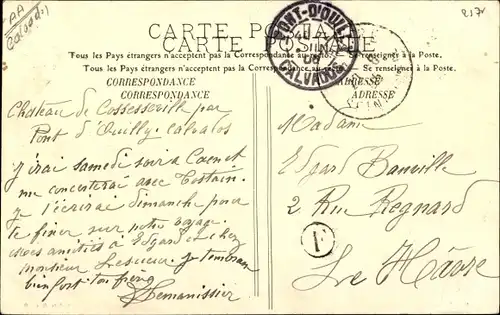 AA
Calvados
217
CARTE POSTALE
CARTE POSTALE
Tous les Pays étrangers n'acceptent pas la Correspondance au Se renseigner à la Poste.
Tous les Pays étrangers n'acceptent pas la Correspondance au Se renseigner à la Poste.
CORRESPONDANCE
CORRESPONDANCE
PONT-D'OUILLY
CALVADOS
ADRESSE
ADRESSE
Chateau de Cossesseville par
Pont d'Ouilly. Calvados
J'irai samedi soir à Caen et
me concerterai avec Tostain.
Je t'écrirai dimanche pour
te fixer sur notre voyage.
Mes amitiés à Edgard et chez
Monsieur Lesueur. Je t'embrasse
bien fort ton frère
Lemanissier
Madame
Edgard Banville
2 Rue Regnard
F
Le Hâvre